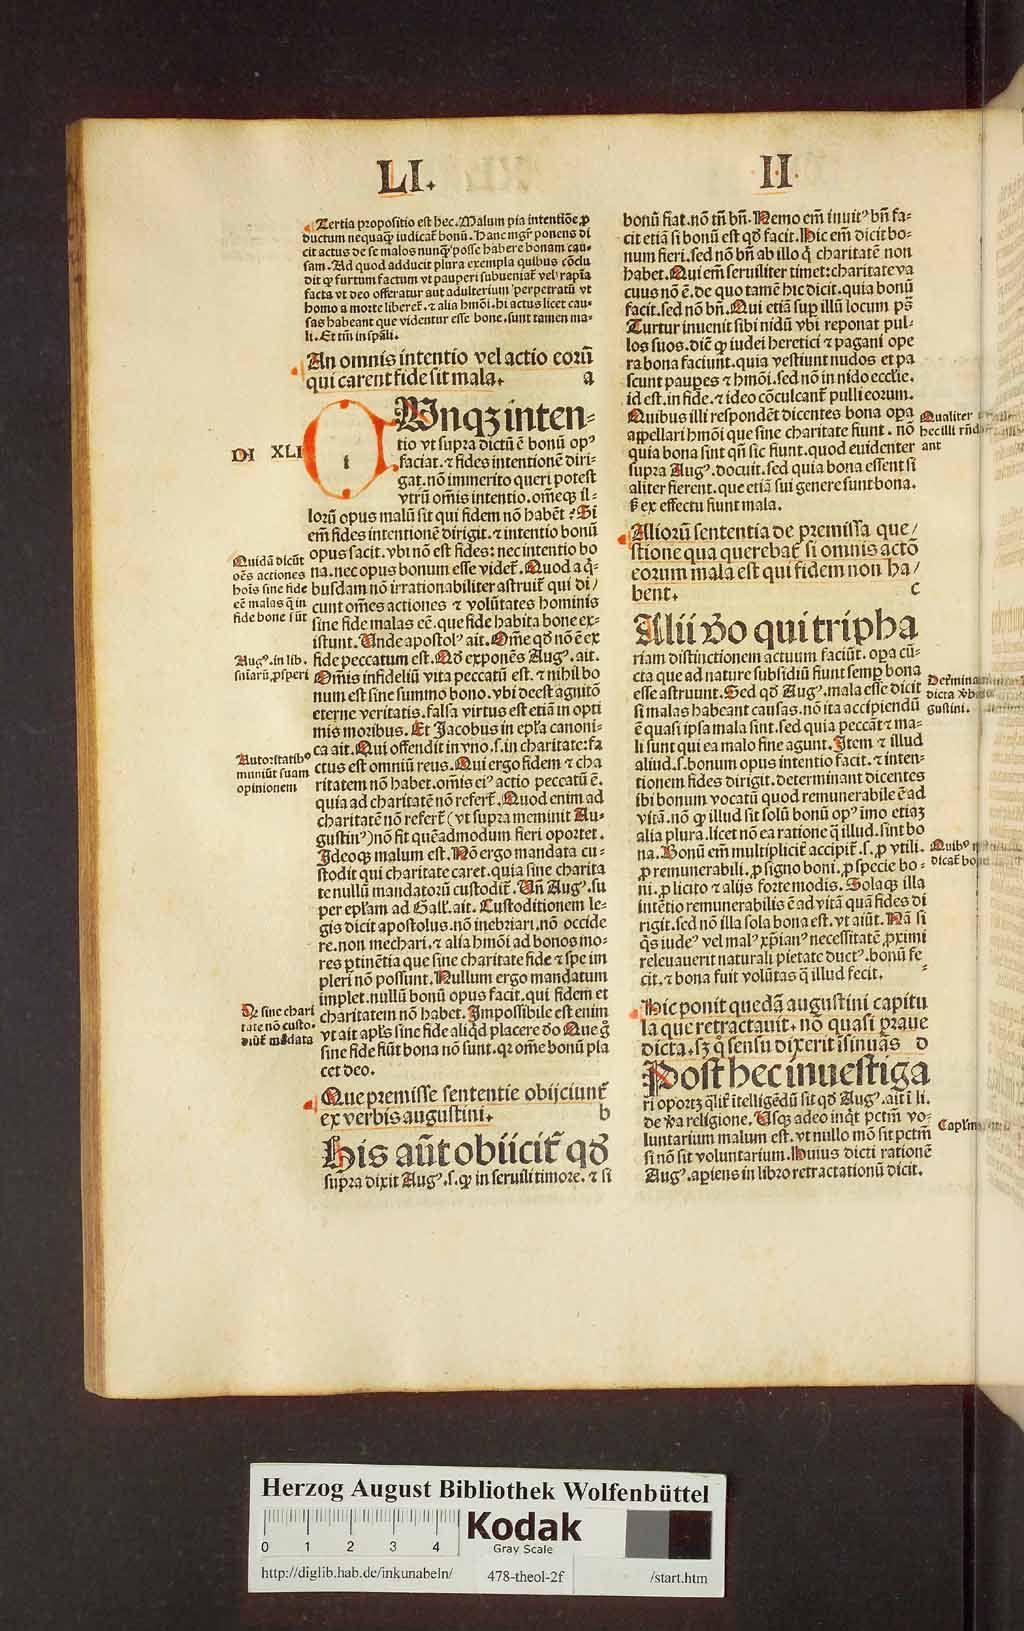 LI.
II
Tertia propositio est hec. Malum pia intentiōe ꝓ
ductum nequaꝙ iudicat̄ bonū. Hanc mgr̄ ponens di
cit actus de se malos nunꝙ posse habere bonam cau-
sam. Ad quod adducit plura exempla quibus cōclu
dit ꝙ furtum factum vt pauperi subueniat̄ vel rapīa
facta vt deo offeratur aut adulterium perpetratū vt
homo a morte liberet̄. ⁊ alia hmōi. hi actus licet cau-
sas habeant que videntur esse bone. sunt tamen ma-
li. Et tm̄ in spāli.
An omnis intentio vel actio eorū
qui carent fide sit mala. a
DI XLI
i
Unqꝫ inten-
tio vt supra dictū ē bonū opꝰ
faciat. ⁊ fides intentionē diri-
gat. nō immerito queri potest
vtrū om̄is intentio. om̄eqꝫ il-
lorū opus malū sit qui fidem nō habēt? Si
em̄ fides intentionē dirigit. ⁊ intentio bonū
opus facit. vbi nō est fides: nec intentio bo
na. nec opus bonum esse videt̄. Quod a q̇-
busdam nō irrationabiliter astruit̄ qui di/
cunt om̄es actiones ⁊ volūtates hominis
sine fide malas eē. que fide habita bone ex-
istunt. Unde apostolꝰ ait. Om̄e qđ nō ē ex
fide peccatum est. Qđ exponēs Augꝰ. ait.
Om̄is infideliū vita peccatū est. ⁊ nihil bo
num est sine summo bono. vbi deest agnitō
eterne veritatis. falsa virtus est etiā in opti
mis moribus. Et Jacobus in epl̄a canoni-
ca ait. Qui offendit in vno. s. in charitate: fa
ctus est omniū reus. Qui ergo fidem ⁊ cha
ritatem nō habet. om̄is eiꝰ actio peccatū ē.
quia ad charitatē nō refert̄. Quod enim ad
charitatē nō refert̄ (vt supra meminit Au-
gustinꝰ) nō fit quēadmodum fieri oportet.
Ideoqꝫ malum est. Nō ergo mandata cu-
stodit qui charitate caret. quia sine charita
te nullū mandatorū custodit̄. Uñ Augꝰ. su
per epl̄am ad Gall̄. ait. Custoditionem le-
gis dicit apostolus. nō inebriari. nō occide
re. non mechari. ⁊ alia hmōi ad bonos mo-
res ꝑtinētia que sine charitate fide ⁊ spe im
pleri nō possunt. Nullum ergo mandatum
implet. nullū bonū opus facit. qui fidem et
charitatem nō habet. Impossibile est enim
vt ait apl̄s sine fide aliq̇d placere deo Que g̊
sine fide fiūt bona nō sunt. qꝛ om̄e bonū pla
cet deo.
Que premisse sententie obijciunt̄
ex verbis augustini. b
His aūt obiicit̄ qđ
supra dixit Augꝰ. s. ꝙ in seruili timore. ⁊ si
Quidā dicūt
oēs actiones
hoīs sine fide
eē malas q̄ in
fide bone sūt
Augꝰ. in lib.
sniarū ꝓsperi
Autoritatibꝰ
muniūt suam
opinionem
Qđ sine chari
tate nō custo-
diūt̄ mādata
bonū fiat. nō tn̄ bn̄. Nemo em̄ inuitꝰ bn̄ fa-
cit etiā si bonū est qđ facit. Hic em̄ dicit bo-
num fieri. sed nō bn̄ ab illo q̇ charitatē non
habet. Qui em̄ seruiliter timet: charitate va
cuus nō ē. de quo tamē hic dicit. quia bonū
facit. sed nō bn̄. Qui etiā suꝑ illū locum ps̄
Turtur inuenit sibi nidū vbi reponat pul-
los suos. dic̄ ꝙ iudei heretici ⁊ pagani ope
ra bona faciunt. quia vestiunt nudos et pa
scunt pauꝑes ⁊ hmōi. sed nō in nido eccl̄ie.
id est. in fide. ⁊ ideo cōculcant̄ pulli eorum.
Quibus illi respondēt dicentes bona oꝑa
appellari hmōi que sine charitate fiunt. nō
quia bona sint qn̄ sic fiunt. quod euidenter
supra Augꝰ. docuit. sed quia bona essent si
aliter fierent. que etiā sui genere sunt bona.
sꝫ ex effectu fiunt mala.
Aliorū sententia de premissa que/
stione qua querebat̄ si omnis actō
eorum mala est qui fidem non ha/
bent. c
Alii vo qui tripha
riam distinctionem actuum faciūt. oꝑa cū-
cta que ad nature subsidiū fiunt semꝑ bona
esse astruunt. Sed qđ Augꝰ. mala esse dicit
si malas habeant causas. nō ita accipiendū
ē quasi ipsa mala sint. sed quia peccāt ⁊ ma-
li sunt qui ea malo fine agunt. Item ⁊ illud
aliud. s. bonum opus intentio facit. ⁊ inten-
tionem fides dirigit. determinant dicentes
ibi bonum vocatū quod remunerabile ē ad
vitā. nō ꝙ illud sit solū bonū opꝰ imo etiaꝫ
alia plura. licet nō ea ratione q̄ illud. sint bo
na. Bonū em̄ multiplicit̄ accipit̄. s. ꝓ vtili.
ꝓ remunerabili. ꝓ signo boni. ꝓ specie bo-
ni. ꝓ licito ⁊ alijs forte modis. Solaqꝫ illa
intētio remunerabilis ē ad vitā quā fides di
rigit. sed nō illa sola bona est. vt aiūt. Nā si
q̇s iudeꝰ vel malꝰ xp̄ianꝰ necessitatē ꝓximi
releuauerit naturali pietate ductꝰ. bonū fe-
cit. ⁊ bona fuit volūtas q̄ illud fecit.
Hic ponit quedā augustini capitu
la que retractauit. nō quasi praue
dicta. sꝫ q̊ sensu dixerit īsinuās d
Post hec inuestiga
ri oportꝫ q̄lit̄ ītelligēdū sit qđ Augꝰ. ait ī li.
de v̄a religione. Usqꝫ adeo inq̇t pctm̄ vo-
luntarium malum est. vt nullo mō sit pctm̄
si nō sit voluntarium. Huius dicti rationē
Augꝰ. aꝑiens in libro retractationū dicit.
Qualiter
hec illi rn̄d
ant
Determina
dicta
gustini.
Quibꝰ
dicat̄
Herzog August Bibliothek Wolfenbüttel
0 1 2 3 4
Kodak
Gray Scale
http://diglib.hab.de/inkunabeln/ 478-theol-2f /start.htm